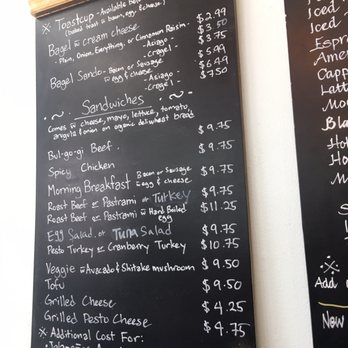 ※ Toastcup - Available before
(baked toast w bacon, egg, & cheese) $2.99
Bagel w cream cheese $3.50
- Plain, Onion, Everything, or Cinnamon Raisin
- Asiago - $3.75
- Cragel -
$5.99
Bagel Sando - Bacon or Sausage $6.49
w egg & cheese
Asiago - $7.50
Cragel -
Sandwiches
Comes w cheese, mayo, lettuce, tomato,
arugula & onion on organic deli wheat bread
Bul-go-gi Beef. $9.75
Spicy Chicken $9.75
Morning Breakfast Bacon or Sausage $9.75
egg & cheese
Roast Beef or Pastrami or Turkey $9.75
Roast Beef or Pastrami w Hard Boiled $11.25
egg
Egg Salad or Tuna Salad $9.75
Pesto Turkey or Cranberry Turkey $10.75
Veggie w Avocado & Shitake mushroom $9.50
Tofu $9.50
Grilled Cheese $4.25
Grilled Pesto Cheese $4.75
※ Additional Cost For:
Iced
Iced
Espre
Ame
Capp
Latt
Moc
Bla
Ho
Ho
Ho
※
Add
Now